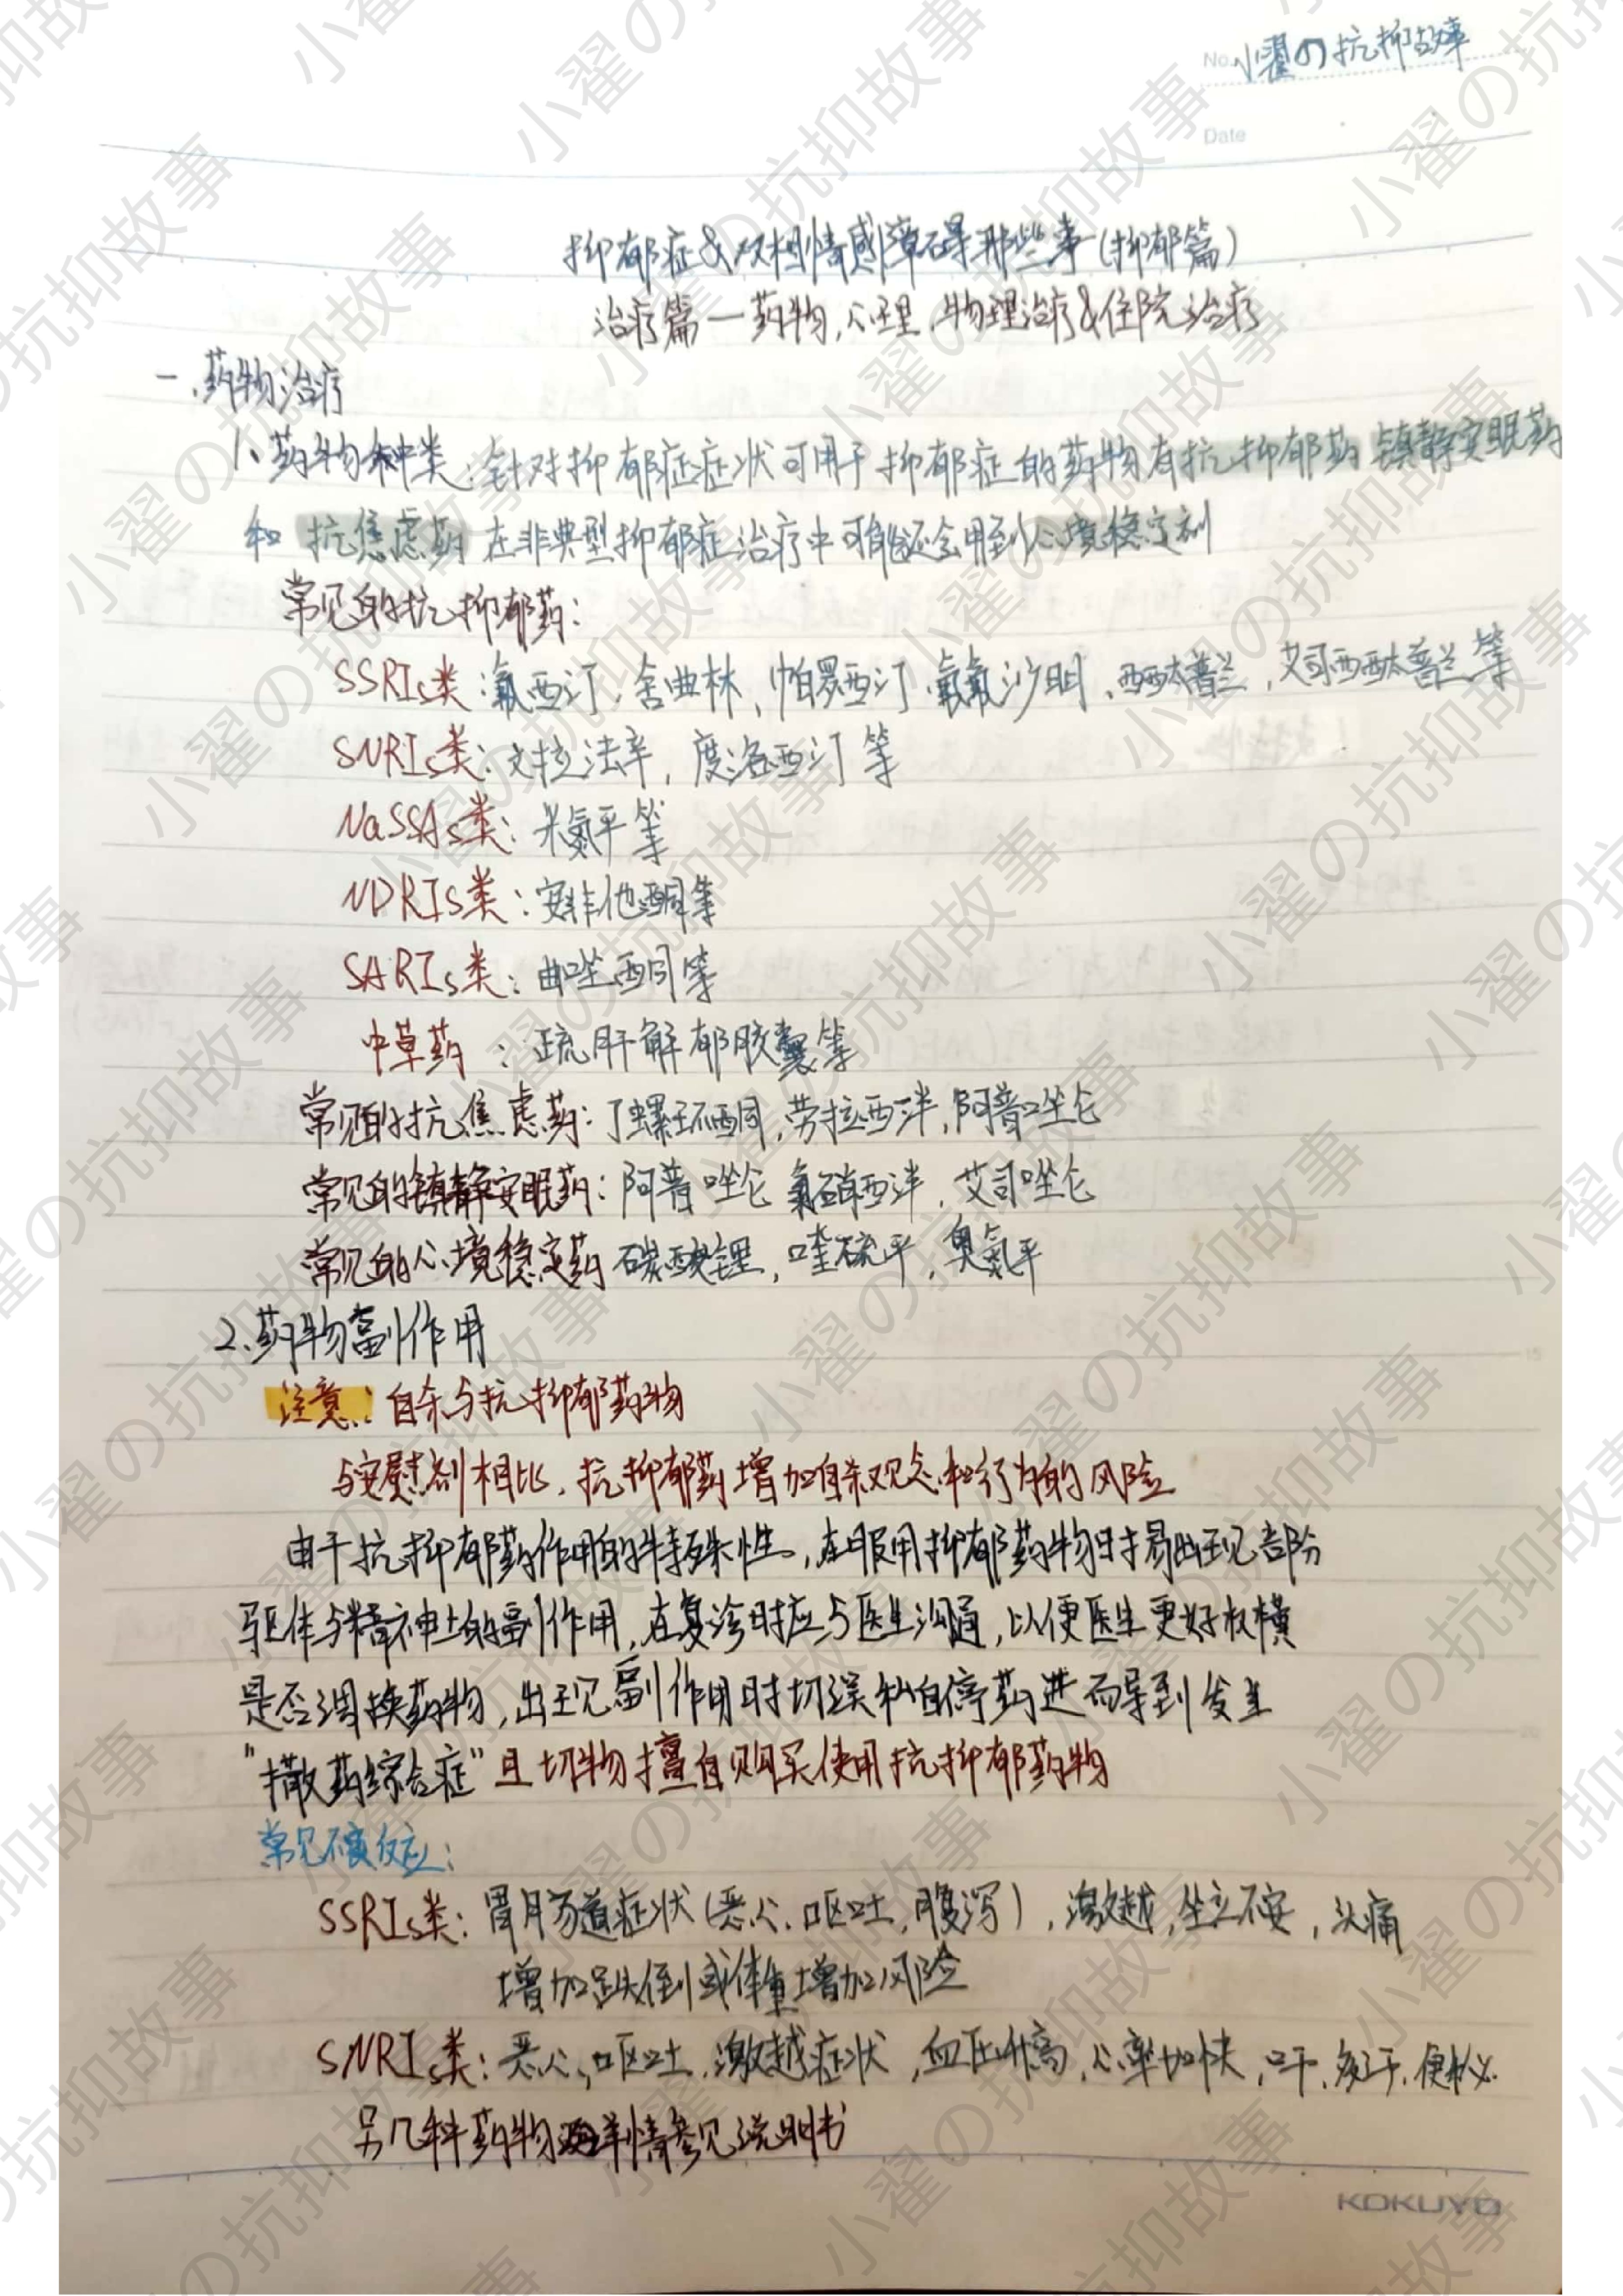 No. 小翟の抗抑故事
Date
抑郁症&双相情感障碍那些事(抑郁篇)
治疗篇—药物,心理,物理治疗&住院治疗
一、药物治疗
1、药物种类:针对抑郁症症状可用于抑郁症的药物有抗抑郁药 镇静安眠药
和 抗焦虑药 在非典型抑郁症治疗中可能还会用到心境稳定剂
常见的抗抑郁药:
SSRIs类:氟西汀、舍曲林、帕罗西汀、氟氟沙明、西酞普兰,艾司西酞普兰等
SNRIs类:文拉法辛,度洛西汀等
NaSSAs类:米氮平等
NDRIs类:安非他酮等
SARIs类:曲唑酮等
中草药 :疏肝解郁胶囊等
常见的抗焦虑药:丁螺环酮,劳拉西泮,阿普唑仑
常见的镇静安眠药:阿普唑仑 氯硝西泮,艾司唑仑
常见的心境稳定药 碳酸锂,喹硫平,奥氮平
2、药物副作用
注意:自杀与抗抑郁药物
与安慰剂相比,抗抑郁药增加自杀观念和行为的风险
由于抗抑郁药作用的特殊性,在服用抑郁药物时易出现部分
躯体与精神上的副作用,在复诊时应与医生沟通,以便医生更好权横
是否调换药物,出现副作用时切误私自停药进而导到发生
"撒药综合症"且切物擅自购买使用抗抑郁药物
常见不良反应:
SSRIs类:胃肠道症状(恶心、呕吐,腹泻),激越,坐立不安,头痛
增加跌倒或体重增加风险
SNRIs类:恶心,呕吐,激越症状,血压升高,心率加快,口干,多汗,便秘.
另几种药物详情参见说明书
KOKUYO
小翟の抗抑故事